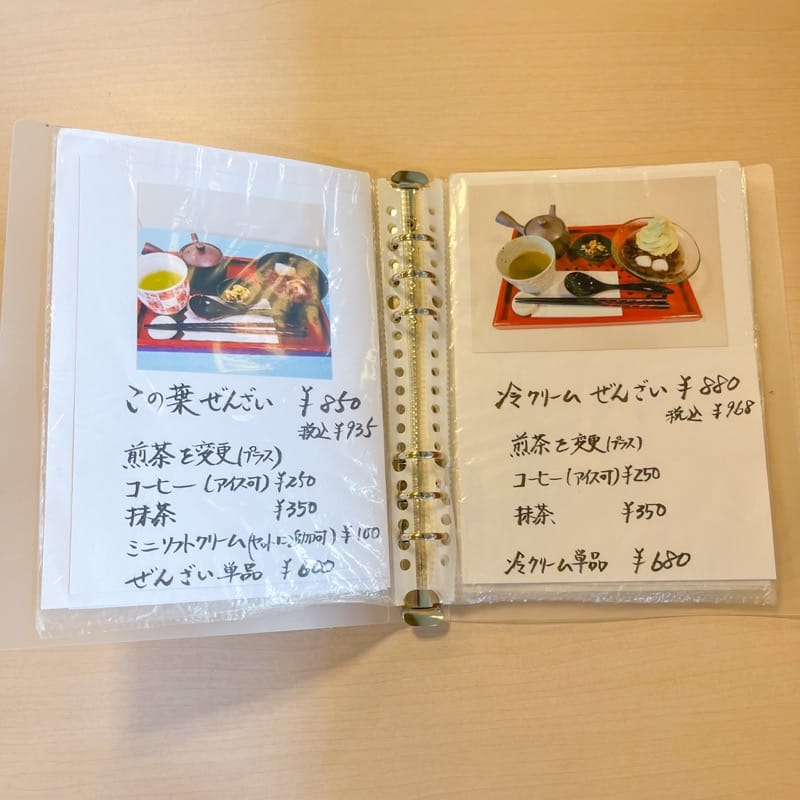 この葉ぜんざい ¥850
税込¥935
煎茶を変更(プラス)
コーヒー(アイス可)¥250
抹茶 ¥350
ミニソフトクリーム(セットに追加可)¥100
ぜんざい単品 ¥600
冷クリームぜんざい ¥880
税込 ¥968
煎茶を変更(プラス)
コーヒー(アイス可)¥250
抹茶 ¥350
冷クリーム単品 ¥680